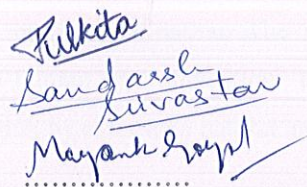 Pulkita
Sandarsh
Srivastav
Mayank Goyal
................